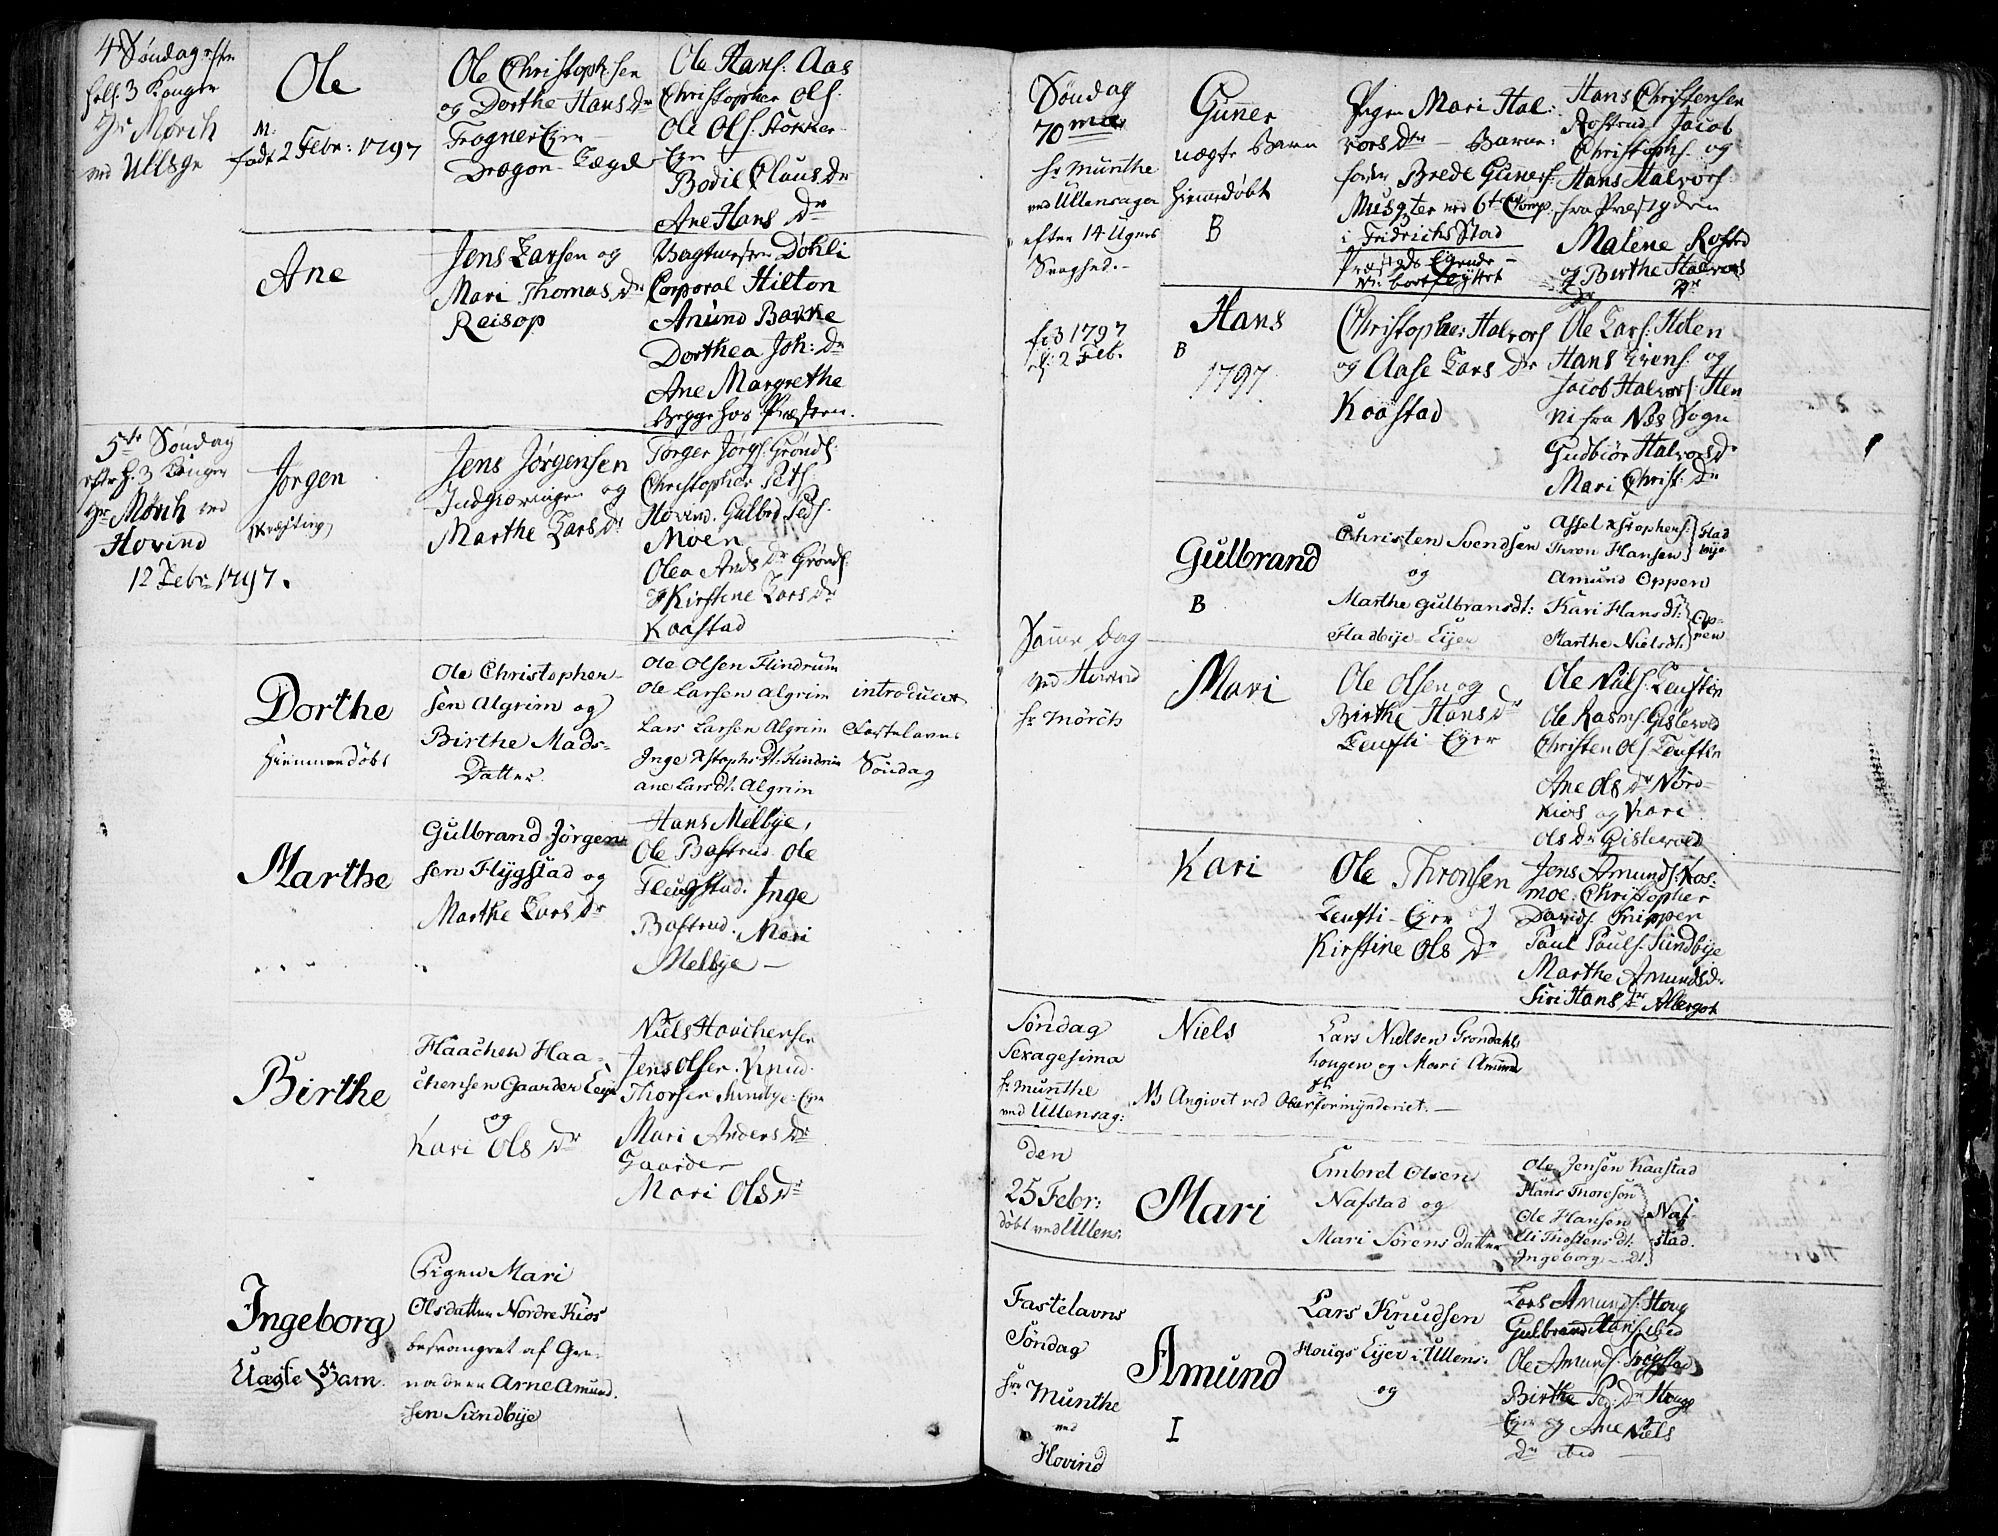 4de Søndag efter
hell. 3 Konger
Hr Mørch
ved Ullsgr
Ole
M:
født 2 Febr: 1797
Ole Christophsen
og Dorthe Hans Dr
Frogner Eye
Dragon
Ole Hans: Aas
Christopher Ols:
Ole Ols: Stokker
Eye
Bodil Claus Dr
Ane Hans Dr
Ane
Jens Larsen og
Mari Thomas Dr
Reisop
Vagtmester Døhli
Corporal Hilton
Anund Bakke
Dorthea Joh: Dr
Ane Margrethe
begge hos Præsten.
5te Søndag
efter h. 3 Konger
Hr Mørch ved
Hovind
12 Febr 1797.
Jørgen
Jens Jørgensen
og
Marthe Lars Dr
Torger Jørgs: Grønds:
Christopher
Hovind. Gulbr Peds:
Moen
Olea Ands Dr Grønds:
Kirstine Lars Dr
Kaastad
Dorthe
Hiemmedøbt
Ole Christopher-
sen Algrim og
Birthe Mads-
Datter.
Ole Olsen Flindrum
Ole Larsen Algrim
Lars Larsen Algrim
Inge Xstophs Dt: Flindrum
ane Larsdt: Algrim
introduceret
Fastelavns
Søndag
Marthe
Gulbrand Jørgen-
sen Flygstad og
Marthe Lars Dr
Hans Melbye,
Ole Bastrud. Ole
Fleugstad. Inge
Bastrud. Mari
Melbye —
Birthe
Haachen Haa-
chensen Gaarder Eye
og
Kari Ols Dr
Niels Hovichensen
Jens Olsen. Knud
Thorsen Sundbye Eye
Mari Anders Dr
Gaarder
Mari Ols Dr
Ingeborg
Uægte Barn.
Pigen Mari
Olsdatter Nordre Kiøs
besvangret af Gre-
naderer Arne Amund-
sen Sundbye
Søndag
70 ma
hr Munthe
ved Ullensager
efter 14 Ugers
Svaghed.
Guner
uægte Barn
hiemedøbt
B
Pigen Mari Hal:
vors Dtr — Barne:
fader Brede Guners:
Musqter ved 6te Comp.
i Fridrichs Stad
Præstegds Eyende —
Nu bortflyttet
Hans Christensen
Rostrud Jacob
Christophs: og
Hans Halvors:
fra Præstgden
Malene Rostrd
og Birthe Halvors
Dr
f: 3 1797
2 Feb.
Hans
B
1797.
Christopher Halvors
og Aase Lars Dr
Kaastad
Ole Lars: Hilen
Hans Evens: og
Jacob Halvors: Hen
ni fra Næs Sogn
Gudbiør Halvors Dr
Mari Christ: Dr
Gulbrand
B
Christen Svendsen
og
Marthe Gulbransdt:
Fladbye-Eyer
Assel Xstophers:
Thron Hansen
Flad
bye
Amund Oppen
Kari Hansdt:
Marthe Nielsdt:
Op-
pen
Same Dag
ved Hovind
hr Mørch
Mari
Ole Olsen og
Birthe Hans Dr
Leufti Eyer
Ole Niels: Leuftin
Ole Rasms: Gislevold
Christen Ols: Leuftin
Ane Ols Dr Nord-
Kiøs og Kari
Ols Dr Gislevold
Kari
Ole Thronsen
Leufti-Eyer og
Kirstine Ols Dr
Jens Amunds: Kos-
moe. Christopher
Davids: Knipper
Paul Pauls: Sundbye
Marthe Amunds Dr
Siri Hans Dr Algergot
Søndag
Sexagesima
hr Munthe
ved Ullensag:
Niels
Lars Nielsen Grøndahls
hougen og Mari Amund
NB Angivet ved Oberformynderiet. —
den
25 Febr:
døbt ved Ullens:
Mari
Embret Olsen
Nafstad og
Mari Sørens datter
Ole Jensen Kaastad
Hans Thoresøn
Ole Hansen
Eli Thostens dt:
Ingeborg — dt
Naf-
stad.
Fastelavns
Søndag
Hr: Munthe
ved
Hovind
Amund
I
Lars Knudsen
Hougs Eyer i Ullens:
og
Lars Amunds: Houg
Gulbrand Hans: ibid
Ole Amunds: Trøgstad
Birthe Ped: Dr Hougs
Eye og Ane Niels
Dr ibid —